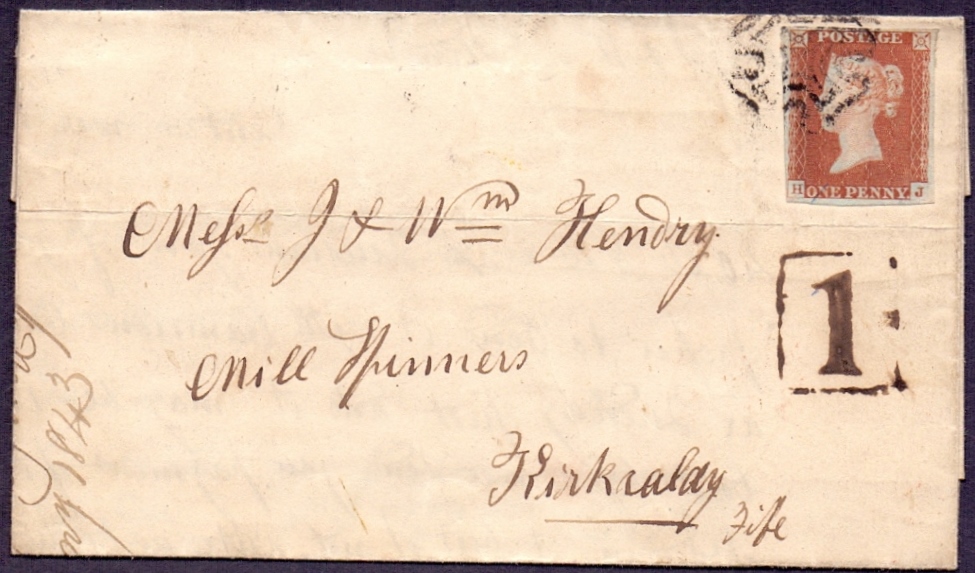 POSTAGE
H ONE PENNY. J
Mess<sup>rs</sup> J & W<sup>m</sup> Hendry
1
Mill Spinners
Kirkcaldy
Fife
1843